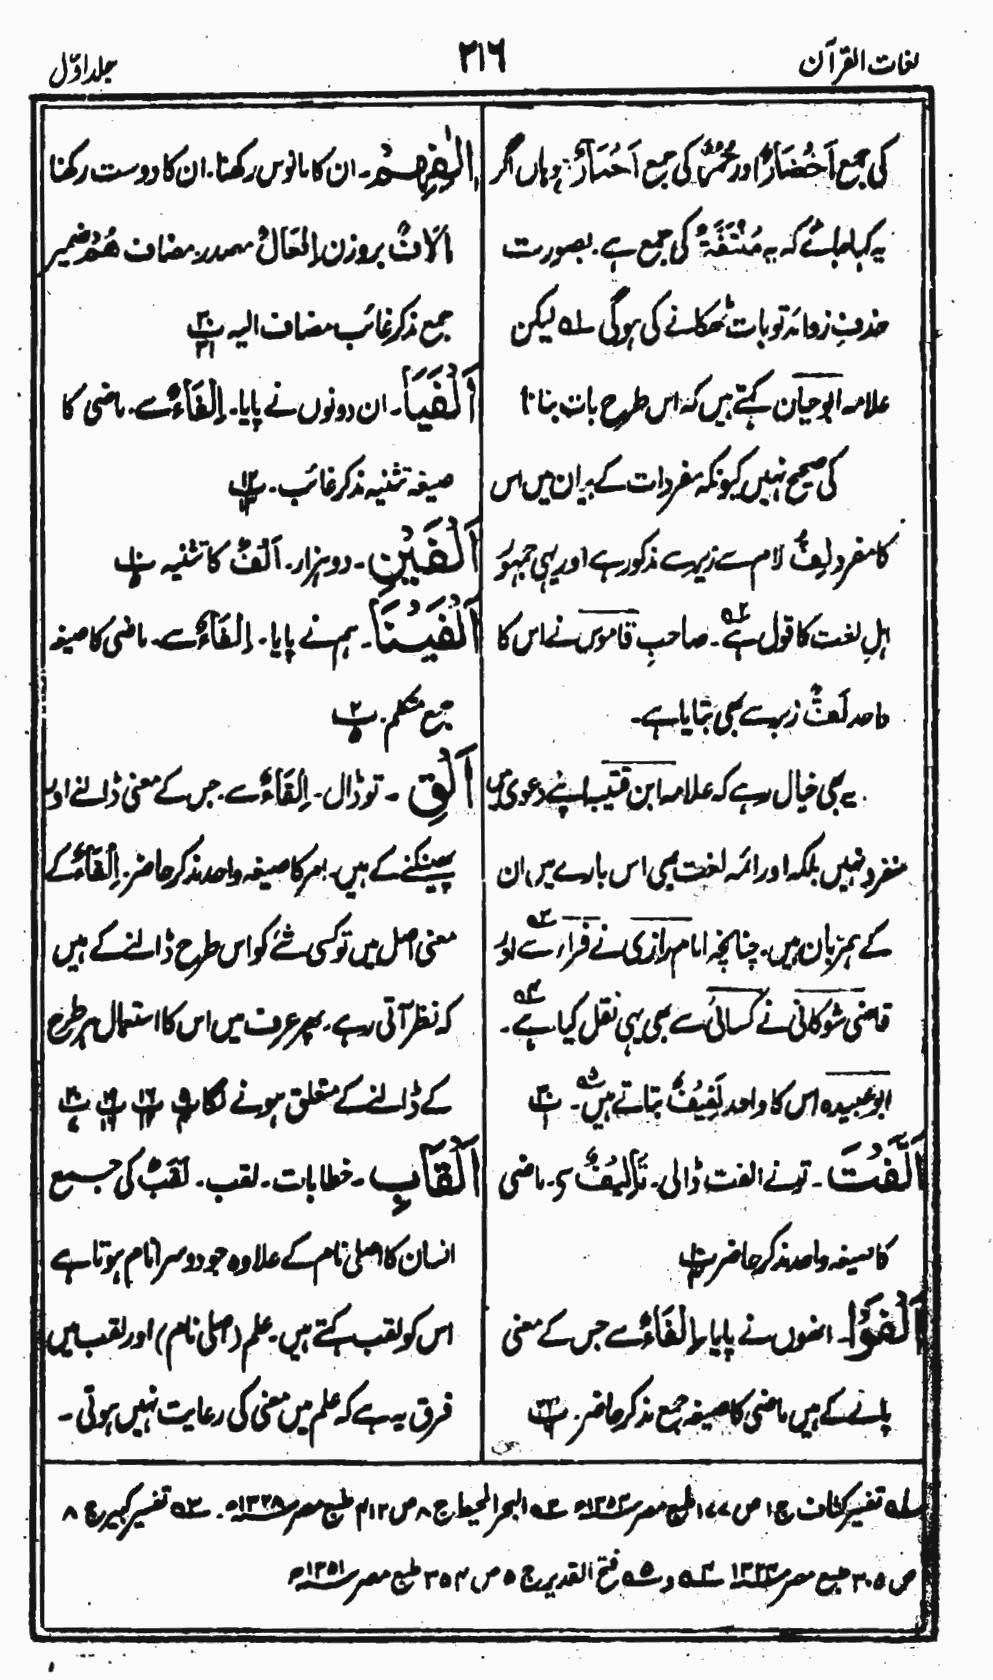 لغات القرآن
٢١٦
جلد اوّل
کی جمع اَخْضَارٌ اور حُمُرٌ کی جمع اَحْمَارٌ ہو ہاں اگر
یہ کہا جائے کہ یہ مُلْتَفَّةٌ کی جمع ہے۔ بصورت
حذفِ زوائد تو بات ٹھکانے کی ہوگی لہ لیکن
علامہ ابو حیان کہتے ہیں کہ اس طرح بات بنانا
کی صحیح نہیں کیونکہ مفردات کے بیان میں اس
کا مفرد لِفٌّ لام سے زیر سے مذکور ہے اور یہی جمہور
اہلِ لغت کا قول ہے ٢ہ۔ صاحبِ قاموس نے اس کا
واحد لَفٌّ زبر سے بھی بتایا ہے۔
یہ بھی خیال رہے کہ علامہ ابن قتیبہ اپنے دعویٰ میں
منفرد نہیں بلکہ اور ائمہ لغت بھی اس بارے میں ان
کے ہمزبان ہیں۔ چنانچہ امام رازی نے فراء ٣ہ سے اور
قاضی شوکانی نے کسائی سے بھی یہی نقل کیا ہے ٤ہ۔
ابو عبیدہ اس کا واحد لَفِيْفٌ بتاتے ہیں ٥ہ۔ پ٣٠
اَلَّفْتَ۔ تو نے الفت ڈالی۔ تَاْلِيْفٌ سے ماضی
کا صیغہ واحد مذکر حاضر پ١٠
اَلْفَوْا۔ انھوں نے پایا۔ اِلْفَاءٌ سے جس کے معنی
پانے کے ہیں ماضی کا صیغہ جمع مذکر حاضر۔ پ٢٣
اٖلٰفِهِمْ۔ ان کا مانوس رکھنا۔ ان کا دوست رکھنا
اٰلَافٌ بروزن اِفْعَالٌ مصدر۔ مضاف هُمْ ضمیر
جمع مذکر غائب مضاف الیہ پ٣٠ ٣١
اَلْفَيَا۔ ان دونوں نے پایا۔ اِلْفَاءٌ سے۔ ماضی کا
صیغہ تثنیہ مذکر غائب۔ پ١٢
اَلْفَيْنِ۔ دو ہزار۔ اَلْفٌ کا تثنیہ پ١٠
اَلْفَيْنَا۔ ہم نے پایا۔ اِلْفَاءٌ سے۔ ماضی کا صیغہ
جمع متکلم۔ پ٢
اَلْقِ۔ تو ڈال۔ اِلْقَاءٌ سے۔ جس کے معنی ڈالنے اور
پھینکنے کے ہیں۔ امر کا صیغہ واحد مذکر حاضر۔ اِلْقَاءٌ کے
معنی اصل میں تو کسی شے کو اس طرح ڈالنے کے ہیں
کہ نظر آتی رہے۔ پھر عرف میں اس کا استعمال ہر طرح
کے ڈالنے کے متعلق ہونے لگا پ٩ پ١٦ پ١٩ پ٢٠
اَلْقَابِ۔ خطابات۔ لقب۔ لَقَبٌ کی جمع
انسان کا اصلی نام کے علاوہ جو دوسرا نام ہوتا ہے
اس کو لقب کہتے ہیں۔ علم (اصلی نام) اور لقب میں
فرق یہ ہے کہ علم میں معنی کی رعایت نہیں ہوتی۔
لہ تفسیر کشاف ج ١ ص ١٧٧ طبع مصر ١٣٥٤ھ ٢ہ البحر المحیط ج ٨ ص ٤١٢ طبع مصر ١٣٢٨ھ۔ ٣ہ تفسیر کبیر ج ٨
ص ٣٠٥ طبع مصر ١٣٢٤ ٤ہ و ٥ہ فتح القدیر ج ٥ ص ٣٥٤ طبع مصر ١٣٥١ھ